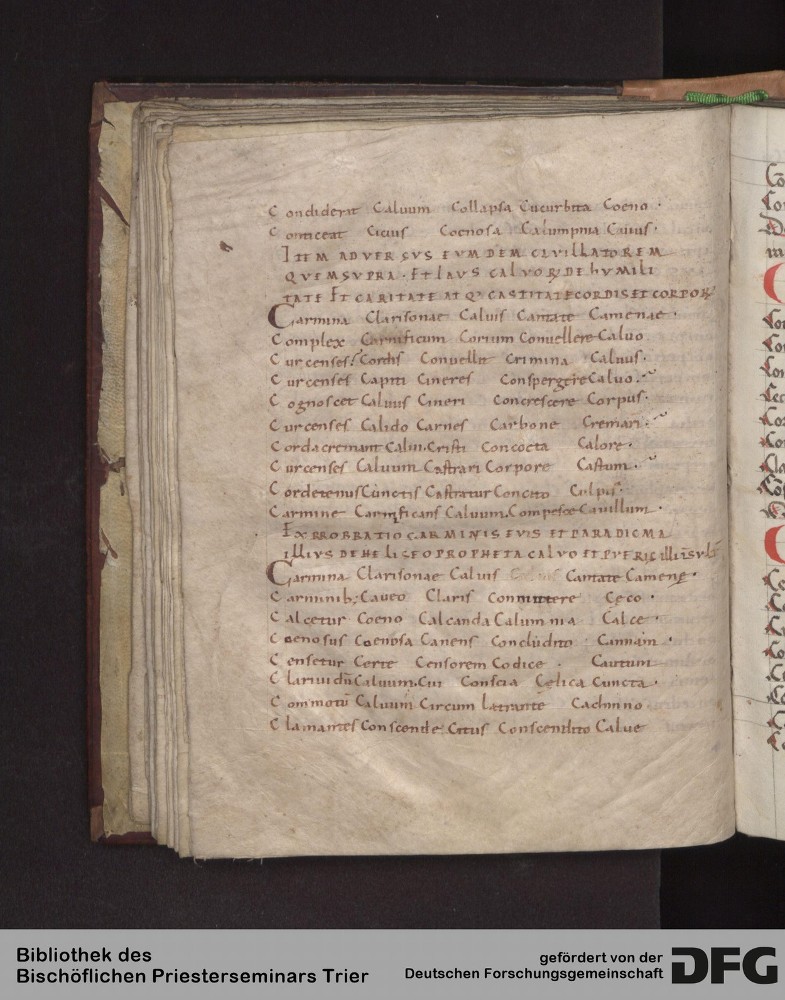 Condiderat Caluum Collapsa Cucurbita Coeno ·
Conticeat Cicius Coenosa Calumpnia Caluus ·
ITEM ADVERSVS EVMDEM CAVILLATOREM
QVEM SVPRA · ET LAVS CALVORV DE hVMILI
TATE ET CARITATE ATQ; CASTITATE CORDIS ET CORPOR
Carmina Clarisonae Caluis Cantate Camenae ·
Complex Carnificum Corium Conuellere Caluo
Curcenses Cordis Conuellit Crimina Caluus ·
Curcenses Capiti Cineres Conspergere Caluo ·
Cognoscet Caluus Cineri Concrescere Corpus ·
Curcenses Calido Carnes Carbone Cremari ·
Corda cremant Calui · Cristi Concocta Calore ·
Curcenses Caluum Castrari Corpore Castum ·
Cordetenus Cunctis Castratur Concito Culpis ·
Carmine Carnificans Caluum · Compesce Cauillum ·
EXPROBRATIO CARMINIS EVIS ET PARADICMA
illIVS DE HELISEO PROPHETA CALVO ET PVERIS illi
Carmina Clarisonae Caluis Cantate Camenę ·
Carminib; Caueo Claris Committere Cęco ·
Calcetur Coeno Calcanda Calumnia Calce ·
Coenosus Coenosa Canens Concludito Cannam ·
Censetur Certe Censorem Codice · Cautum
Claruidū Caluum · Cui Conscia Cęlica Cuncta ·
Commotū Caluum Circum Latrante Cachinno
Clamantes Conscende Citus Conscendito Calue
Bibliothek des
Bischöflichen Priesterseminars Trier
gefördert von der
Deutschen Forschungsgemeinschaft
DFG